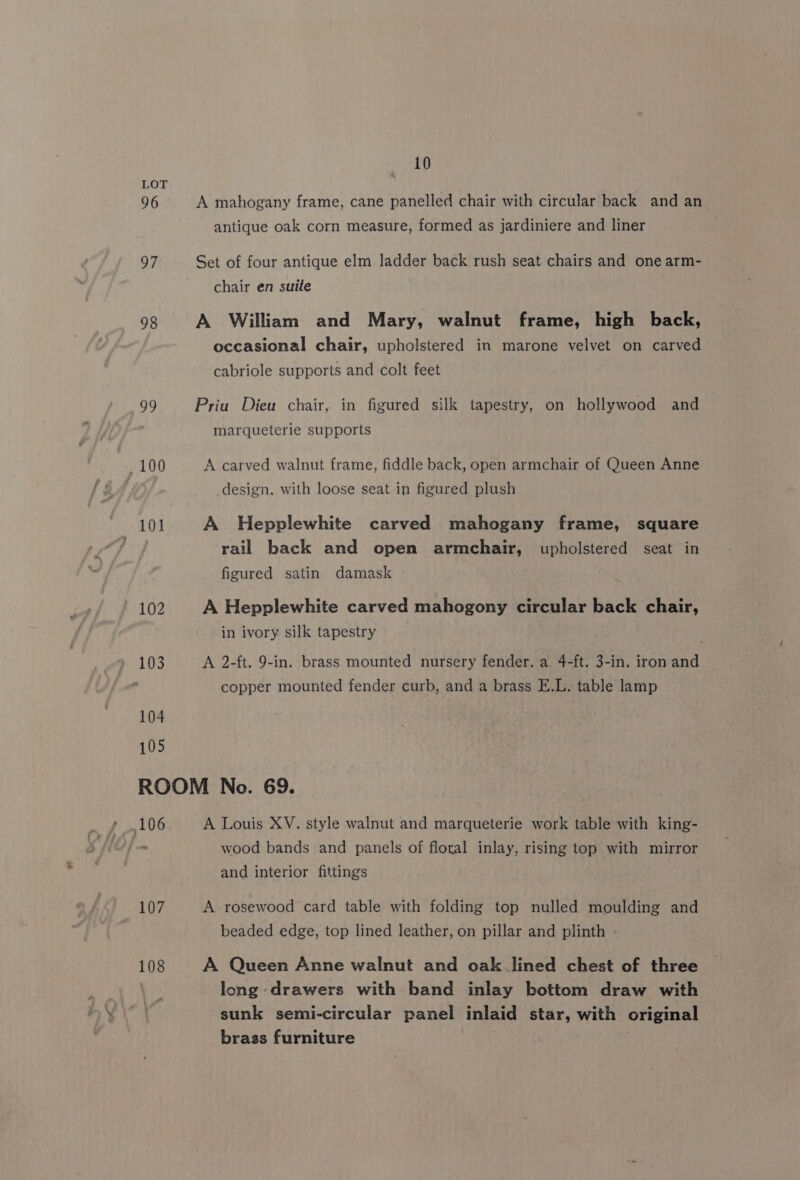 10
LOT
96 A mahogany frame, cane panelled chair with circular back and an
antique oak corn measure, formed as jardiniere and liner
97 Set of four antique elm ladder back rush seat chairs and one arm-
chair en suite
98 A William and Mary, walnut frame, high back,
occasional chair, upholstered in marone velvet on carved
cabriole supports and colt feet
99 Priu Dieu chair, in figured silk tapestry, on hollywood and
marqueterie supports
100 A carved walnut frame, fiddle back, open armchair of Queen Anne
design, with loose seat in figured plush
101 A Hepplewhite carved mahogany frame, square
rail back and open armchair, upholstered seat in
figured satin damask
102 A Hepplewhite carved mahogony circular back chair,
in ivory silk tapestry
103 A 2-ft. 9-in. brass mounted nursery fender, a 4-ft. 3-in. iron and
copper mounted fender curb, and a brass E.L. table lamp
104
105
ROOM No. 69.
106 A Louis XV. style walnut and marqueterie work table with king-
wood bands and panels of floral inlay, rising top with mirror
and interior fittings
107 A rosewood card table with folding top nulled moulding and
beaded edge, top lined leather, on pillar and plinth
108 A Queen Anne walnut and oak lined chest of three
long drawers with band inlay bottom draw with
sunk semi-circular panel inlaid star, with original
brass furniture